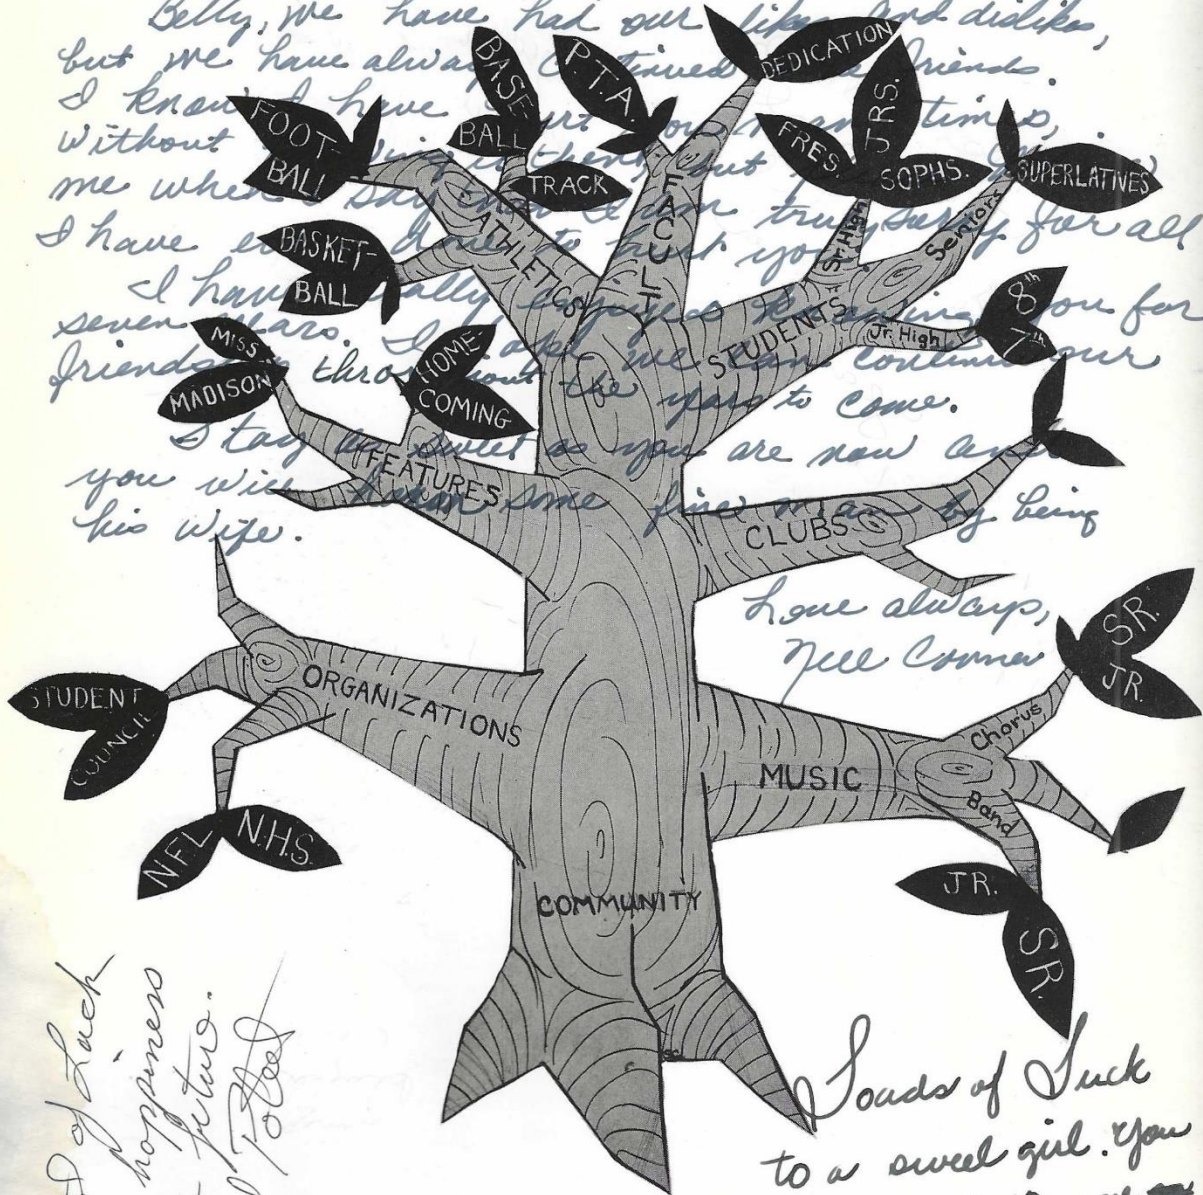 Betty, we have had our likes and dislikes,
but we have always continued friends.
I know I have hurt you many times,
without them, but
me when I say that I am truly sorry for all
I have ever done to hurt you.
I have really enjoyed knowing you for
seven years. I we can continue our
friends throughout the years to come.
Stay as sweet as you are now and
you will some fine man by being
his wife.
Love always,
Nell Conner
DEDICATION
BASE
BALL
P.T.A.
FOOT
BALL
TRACK
FRES.
JRS.
SOPHS.
SUPERLATIVES
FACULT
ATHLETICS
BASKET-
BALL
Sr. High
Seniors
STUDENTS
Jr. High
8th
7th
MISS
MADISON
HOME
COMING
FEATURES
CLUBS
SR.
JR.
STUDENT
COUNCIL
ORGANIZATIONS
Chorus
MUSIC
Band
NFL
N.H.S.
JR.
SR.
COMMUNITY
of Luck
happiness
future.
Loads of Luck
to a sweet girl. You